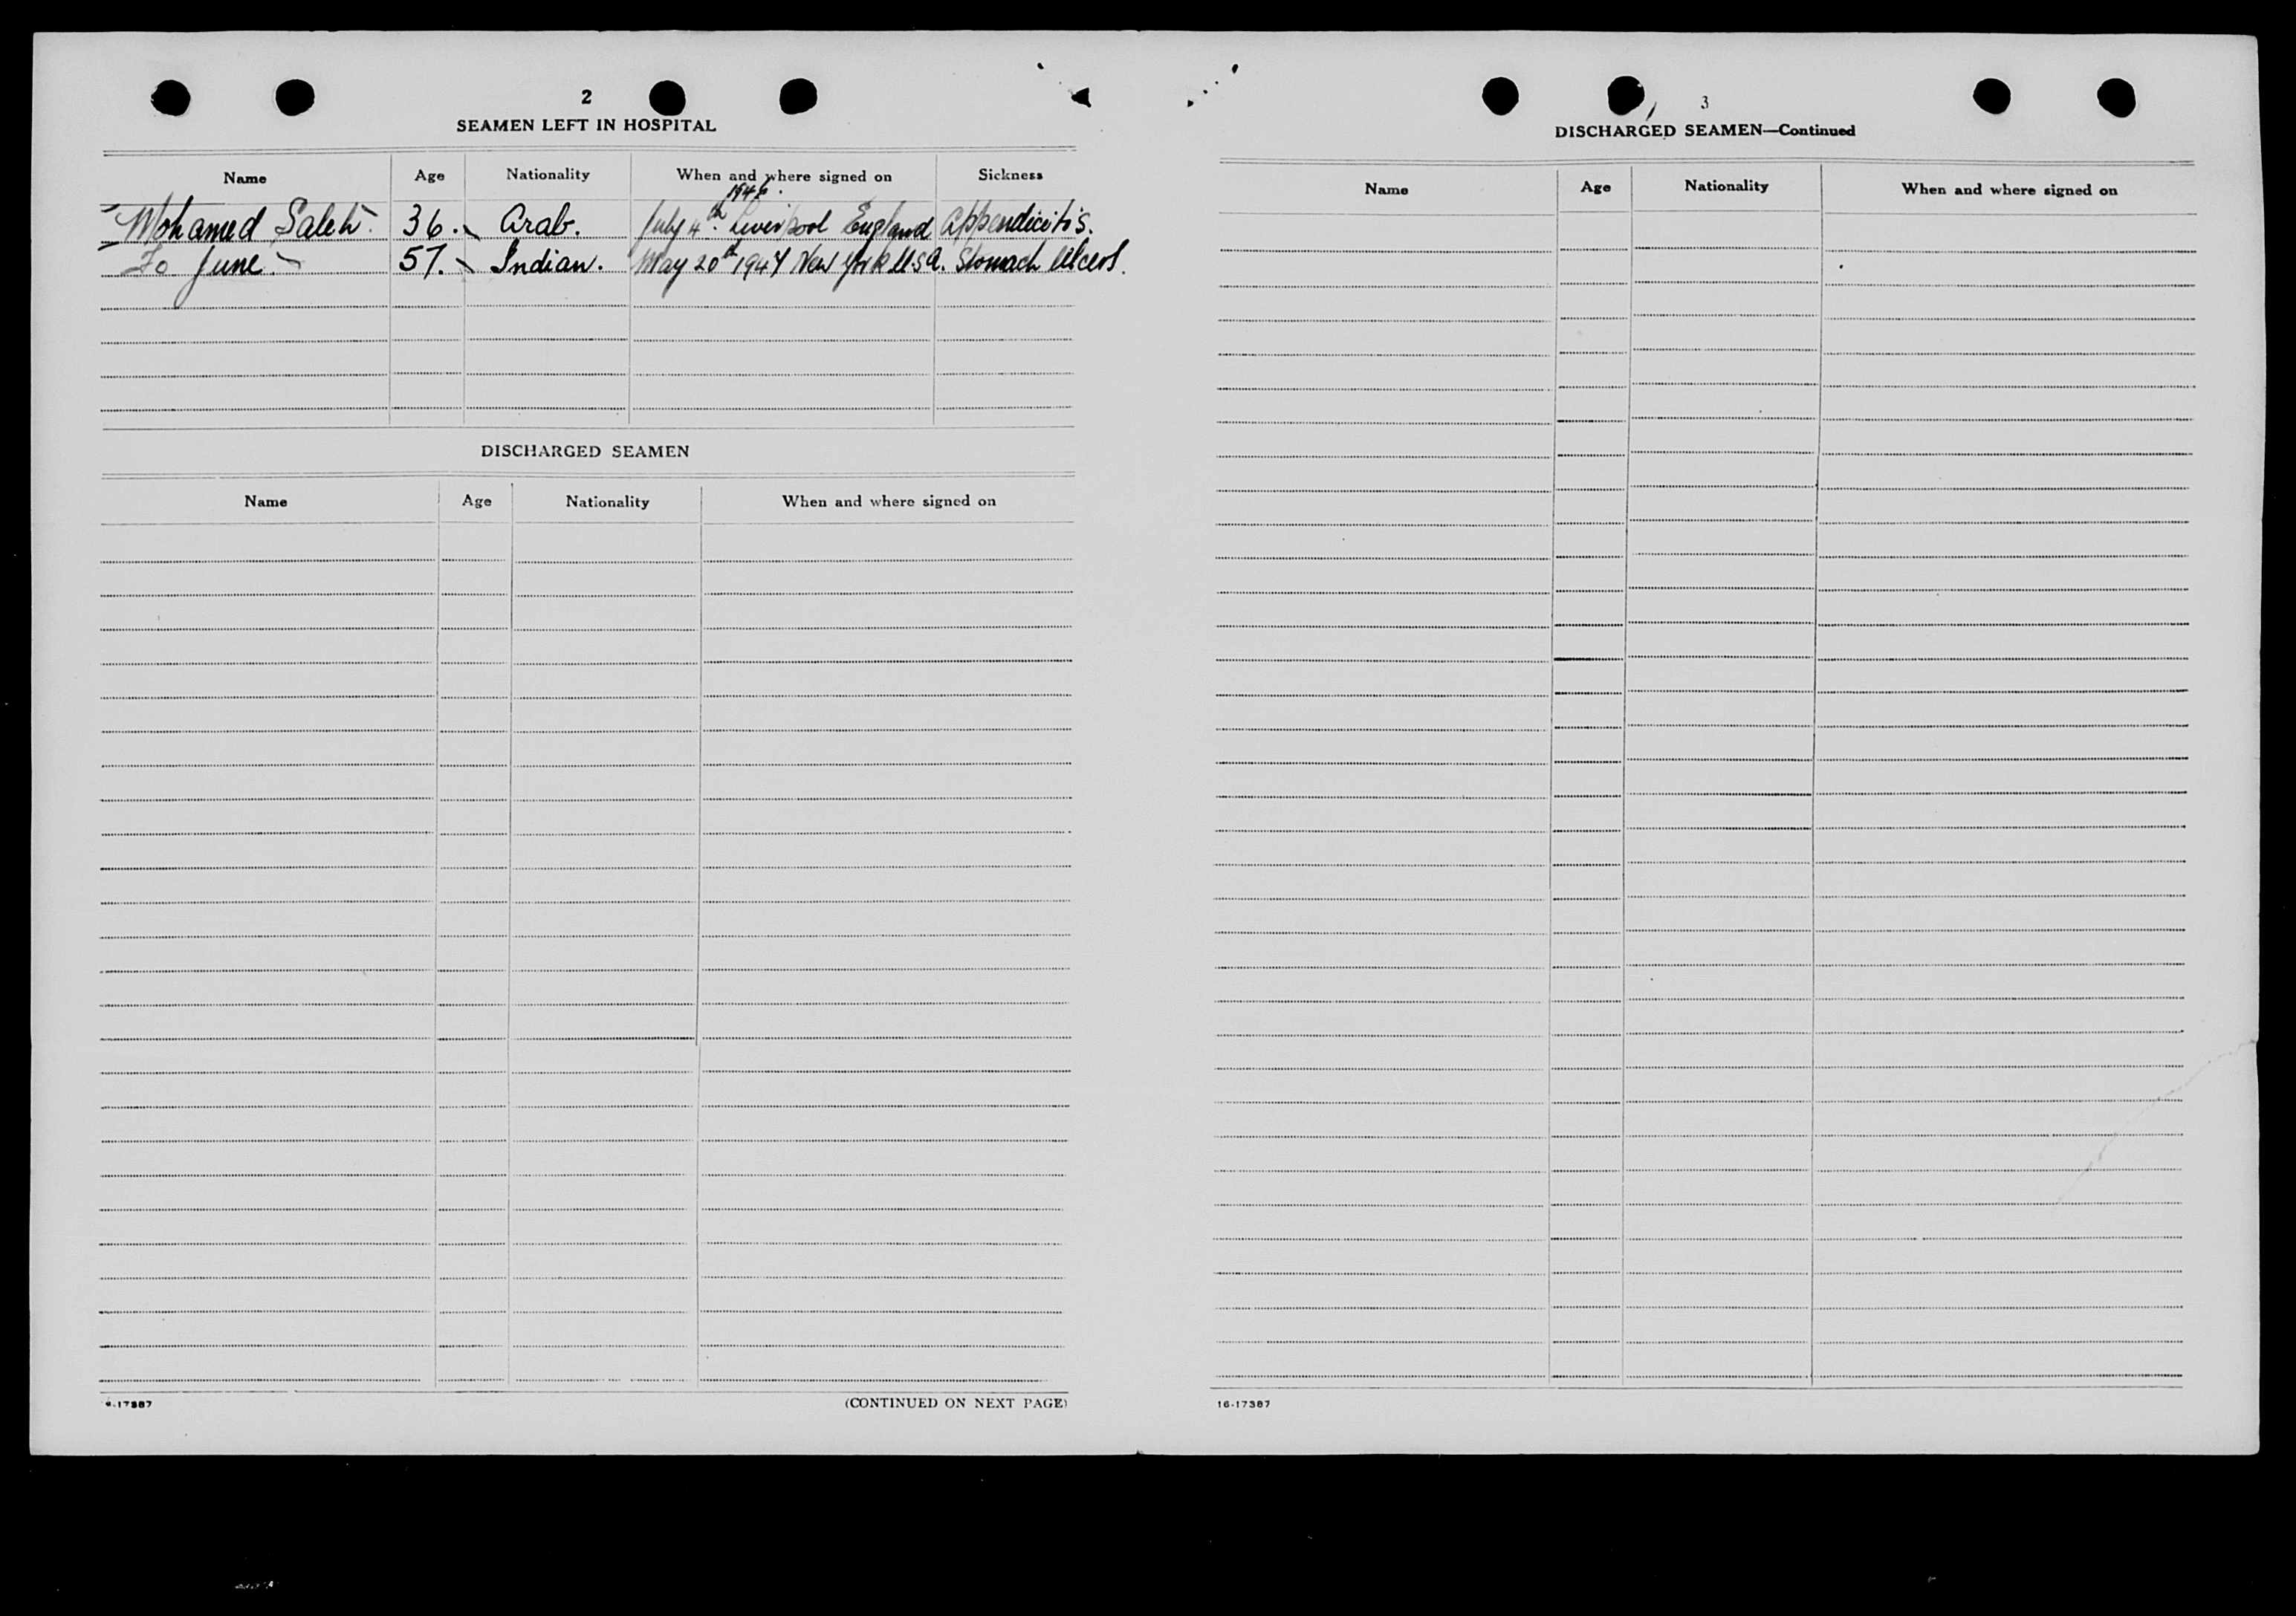 2
SEAMEN LEFT IN HOSPITAL
Name Age Nationality When and where signed on Sickness
1946.
Mohamed Saleh. 36. Arab. July 4th. Liverpool England Appendicitis.
Jo June. 57. Indian. May 20th 1947 New York U.S.A. Stomach Ulcers.
DISCHARGED SEAMEN
Name Age Nationality When and where signed on
(CONTINUED ON NEXT PAGE)
3
DISCHARGED SEAMEN—Continued
Name Age Nationality When and where signed on
16-17387